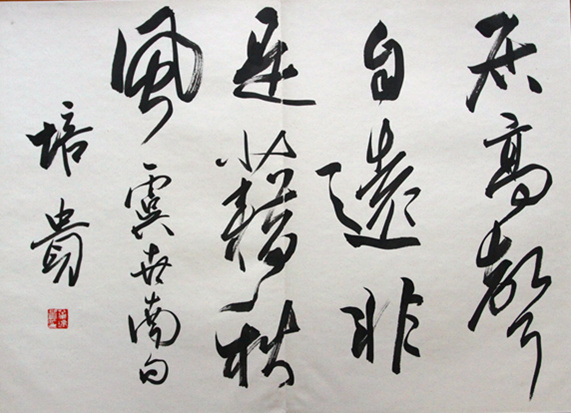 居高聲
自遠非
是藉秋
風 虞世南句
培貴